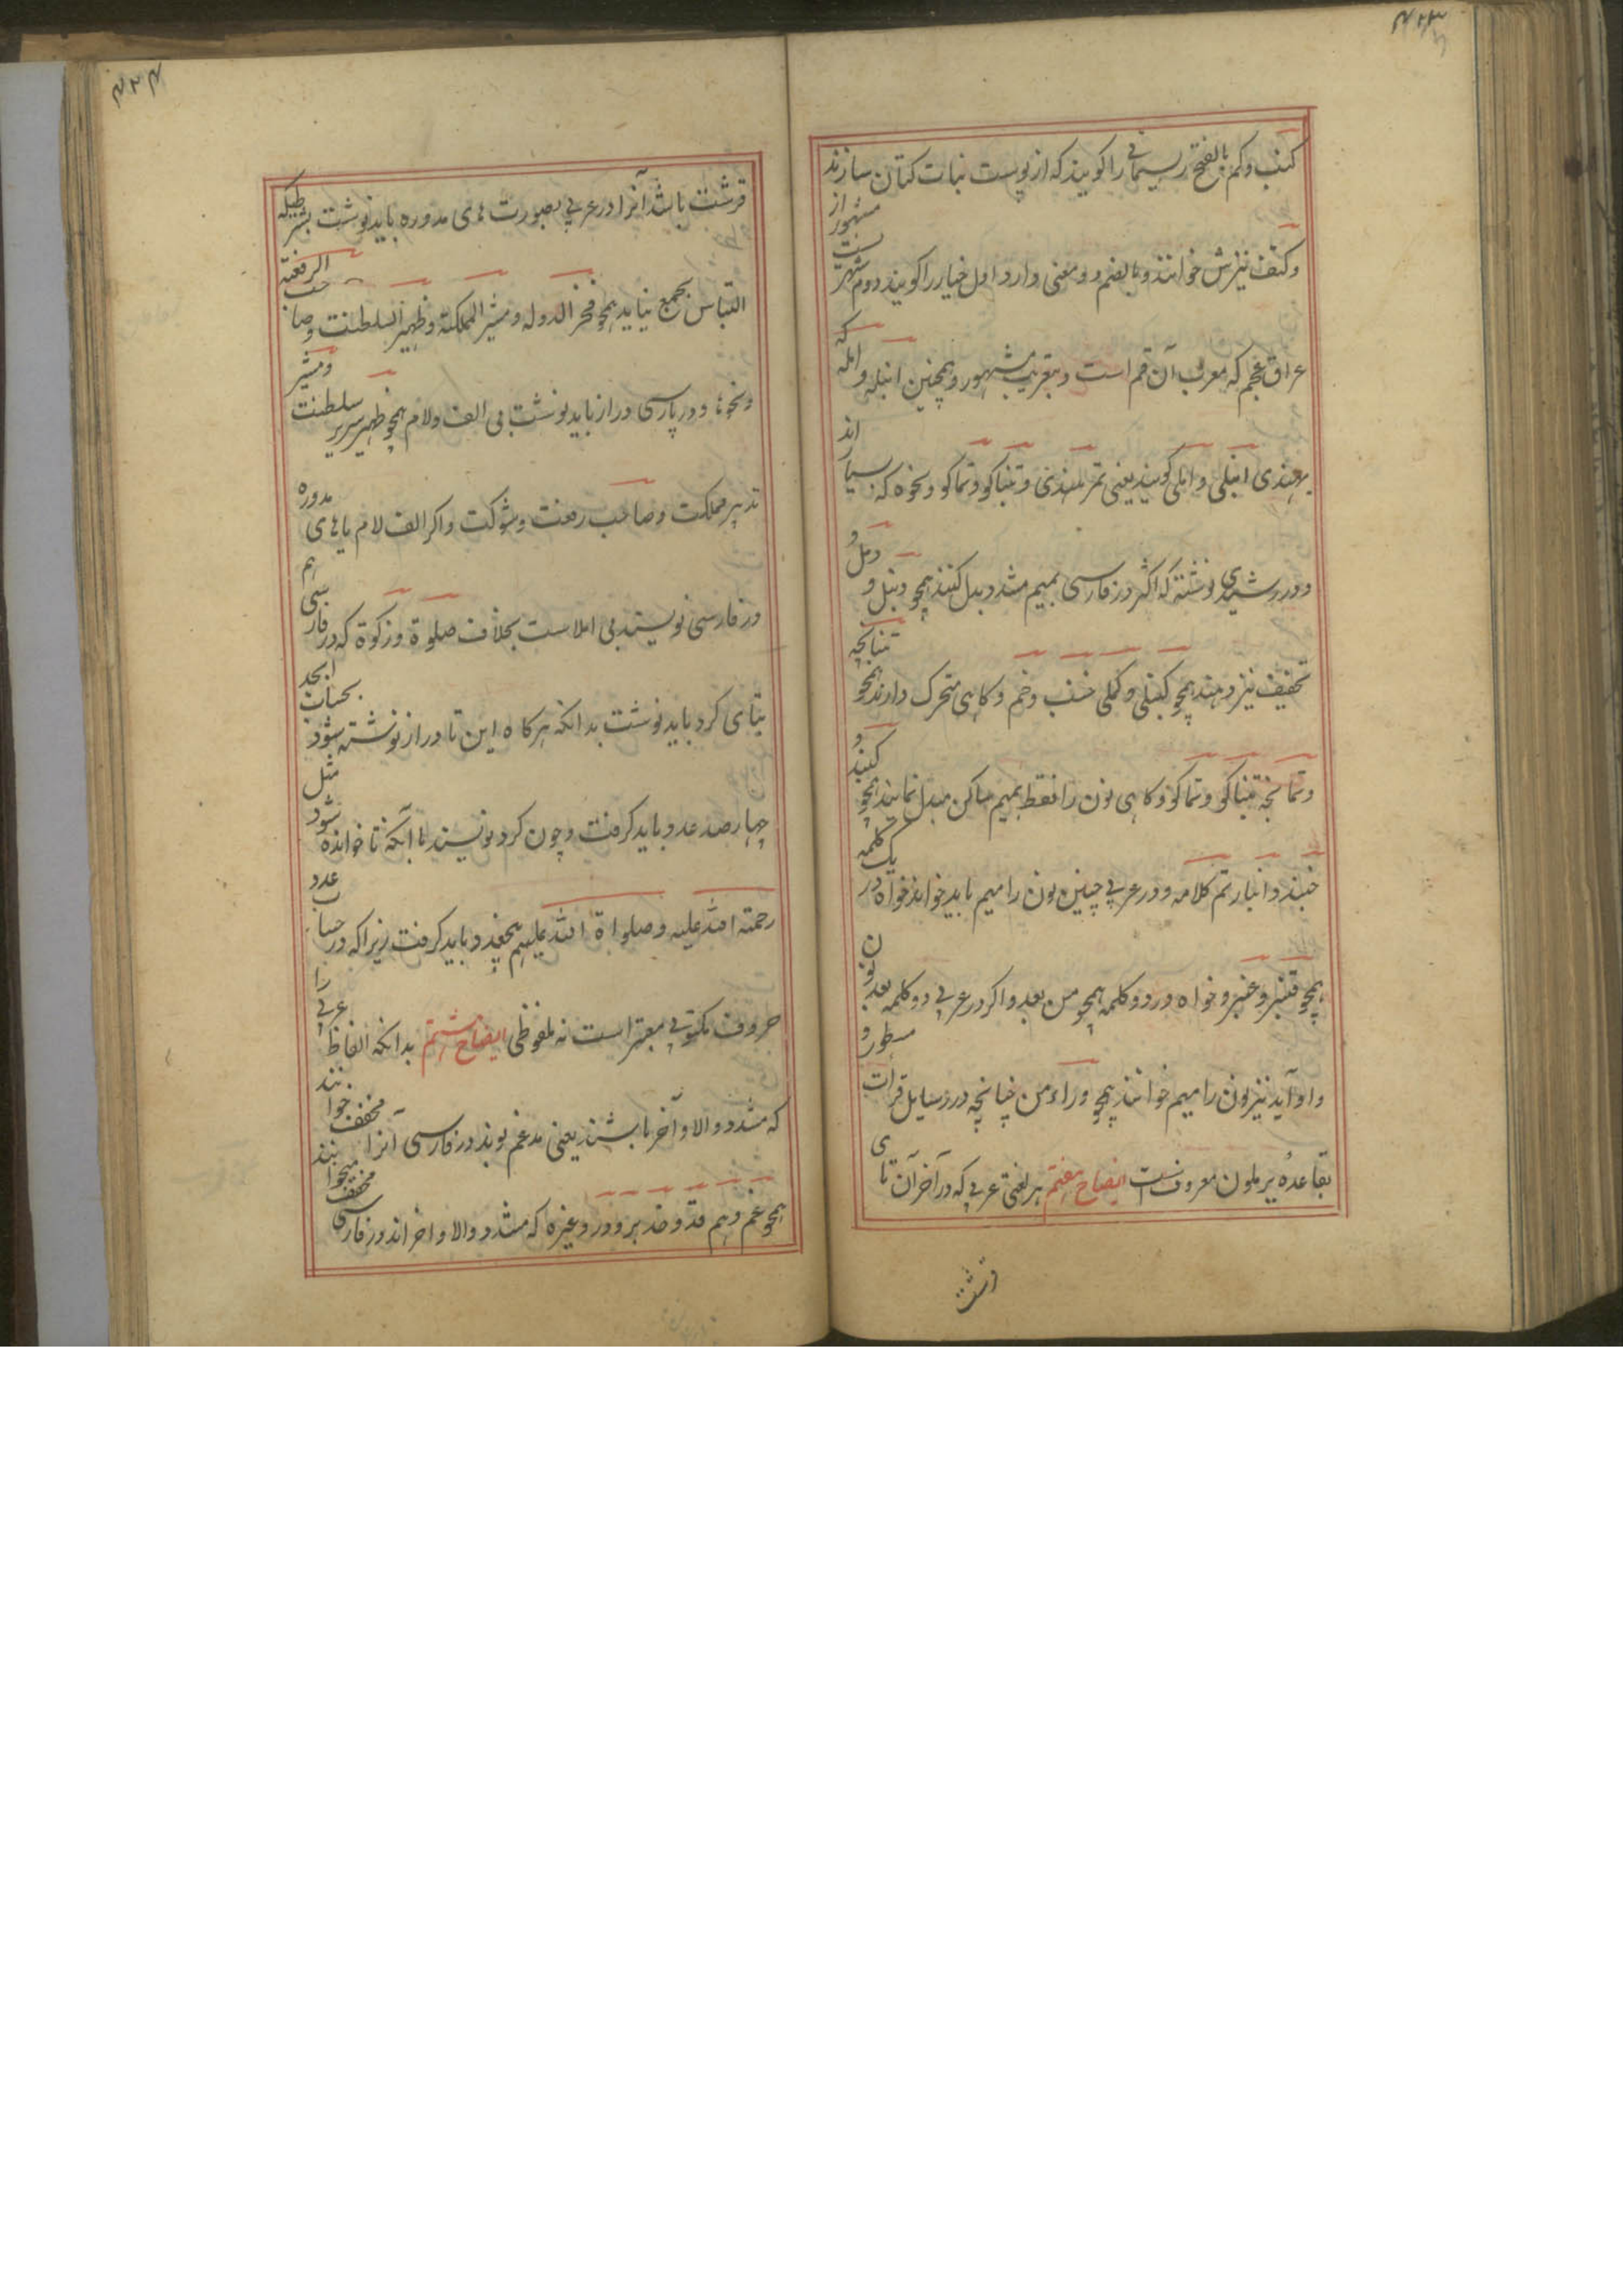 ۴۲۳
کنب و کم بالفتح ریسمانی را کویند که از پوست نبات کتان سازند
و کنف نیزش خوانند و بالضم دو معنی دارد اول خیار را کویند دوم شهریست مشهور از
عراق عجم که معرب آن قم است و بتعریب مشهور و همچنین انبله و امله که
بهندی انبلی و املی کویند یعنی تمر هندی و تنباکو و تماکو و نحوه که بسیار اند
و در رشیدی نوشته که اکثر در فارسی بمیم مشدد بدل کنند همچو دنبل و دمل و
تخفیف نیز دهند همچو کنبلی و کملی خنب و خم و کاهی متحرک دارند همچو تنبانچه
و تمانچه تنباکو و تماکو و کاهی نون را فقط بمیم ساکن مبدل نمایند همچو کنبد و
خنبد و انبار تم کلامه و در عربی چنین نون را میم باید خواند خواه در یک کلمه
همچو قنبر و عنبر و خواه در دو کلمه همچو من بعد و اکر در عربی دو کلمه بعد نون
واو آید نیز نون را میم خوانند همچو وراء من چنانچه در رسایل قرات مسطور و
بقاعدهٔ یرملون معروفست ایضاح هفتم هر لغتی عربی که در آخر آن تای
قرشت
۴۲۴
قرشت باشد آنرا در عربی بصورت های مدوره باید نوشت بشرطیکه
التباس بجمع نیاید همچو فخر الدوله و مشیر المملکة و ظهیر السلطنت و صاحب الرفعة
و نحوها و در پارسی دراز باید نوشت بی الف و لام همچو ظهیر سریر سلطنت و مشیر
تدبیر مملکت و صاحب رفعت و شوکت و اکر الف لام یا های مدوره
در فارسی نویسند بی املاست بخلاف صلوة و زکوة که در فارسی هم
بتای کرد باید نوشت بدانکه هرکاه این تا دراز نوشته شود بحساب ابجد
چهارصد عدد باید کرفت و چون کرد نویسند با آنکه تا خوانده شود مثل
رحمة الله علیه و صلواة الله علیهم پنج عدد باید کرفت زیرا که در حساب عدد
حروف مکتوبی معتبر است نه ملفوظی ایضاح هشتم بدانکه الفاظ عربی را
که مشدد والاوآخر باشند یعنی مدغم بوند در فارسی آنرا مخفف خوانند
همچو غم و هم قد و خد بر و در و غیره که مشدد والاواخر اند در فارسی مخفف میخوانند